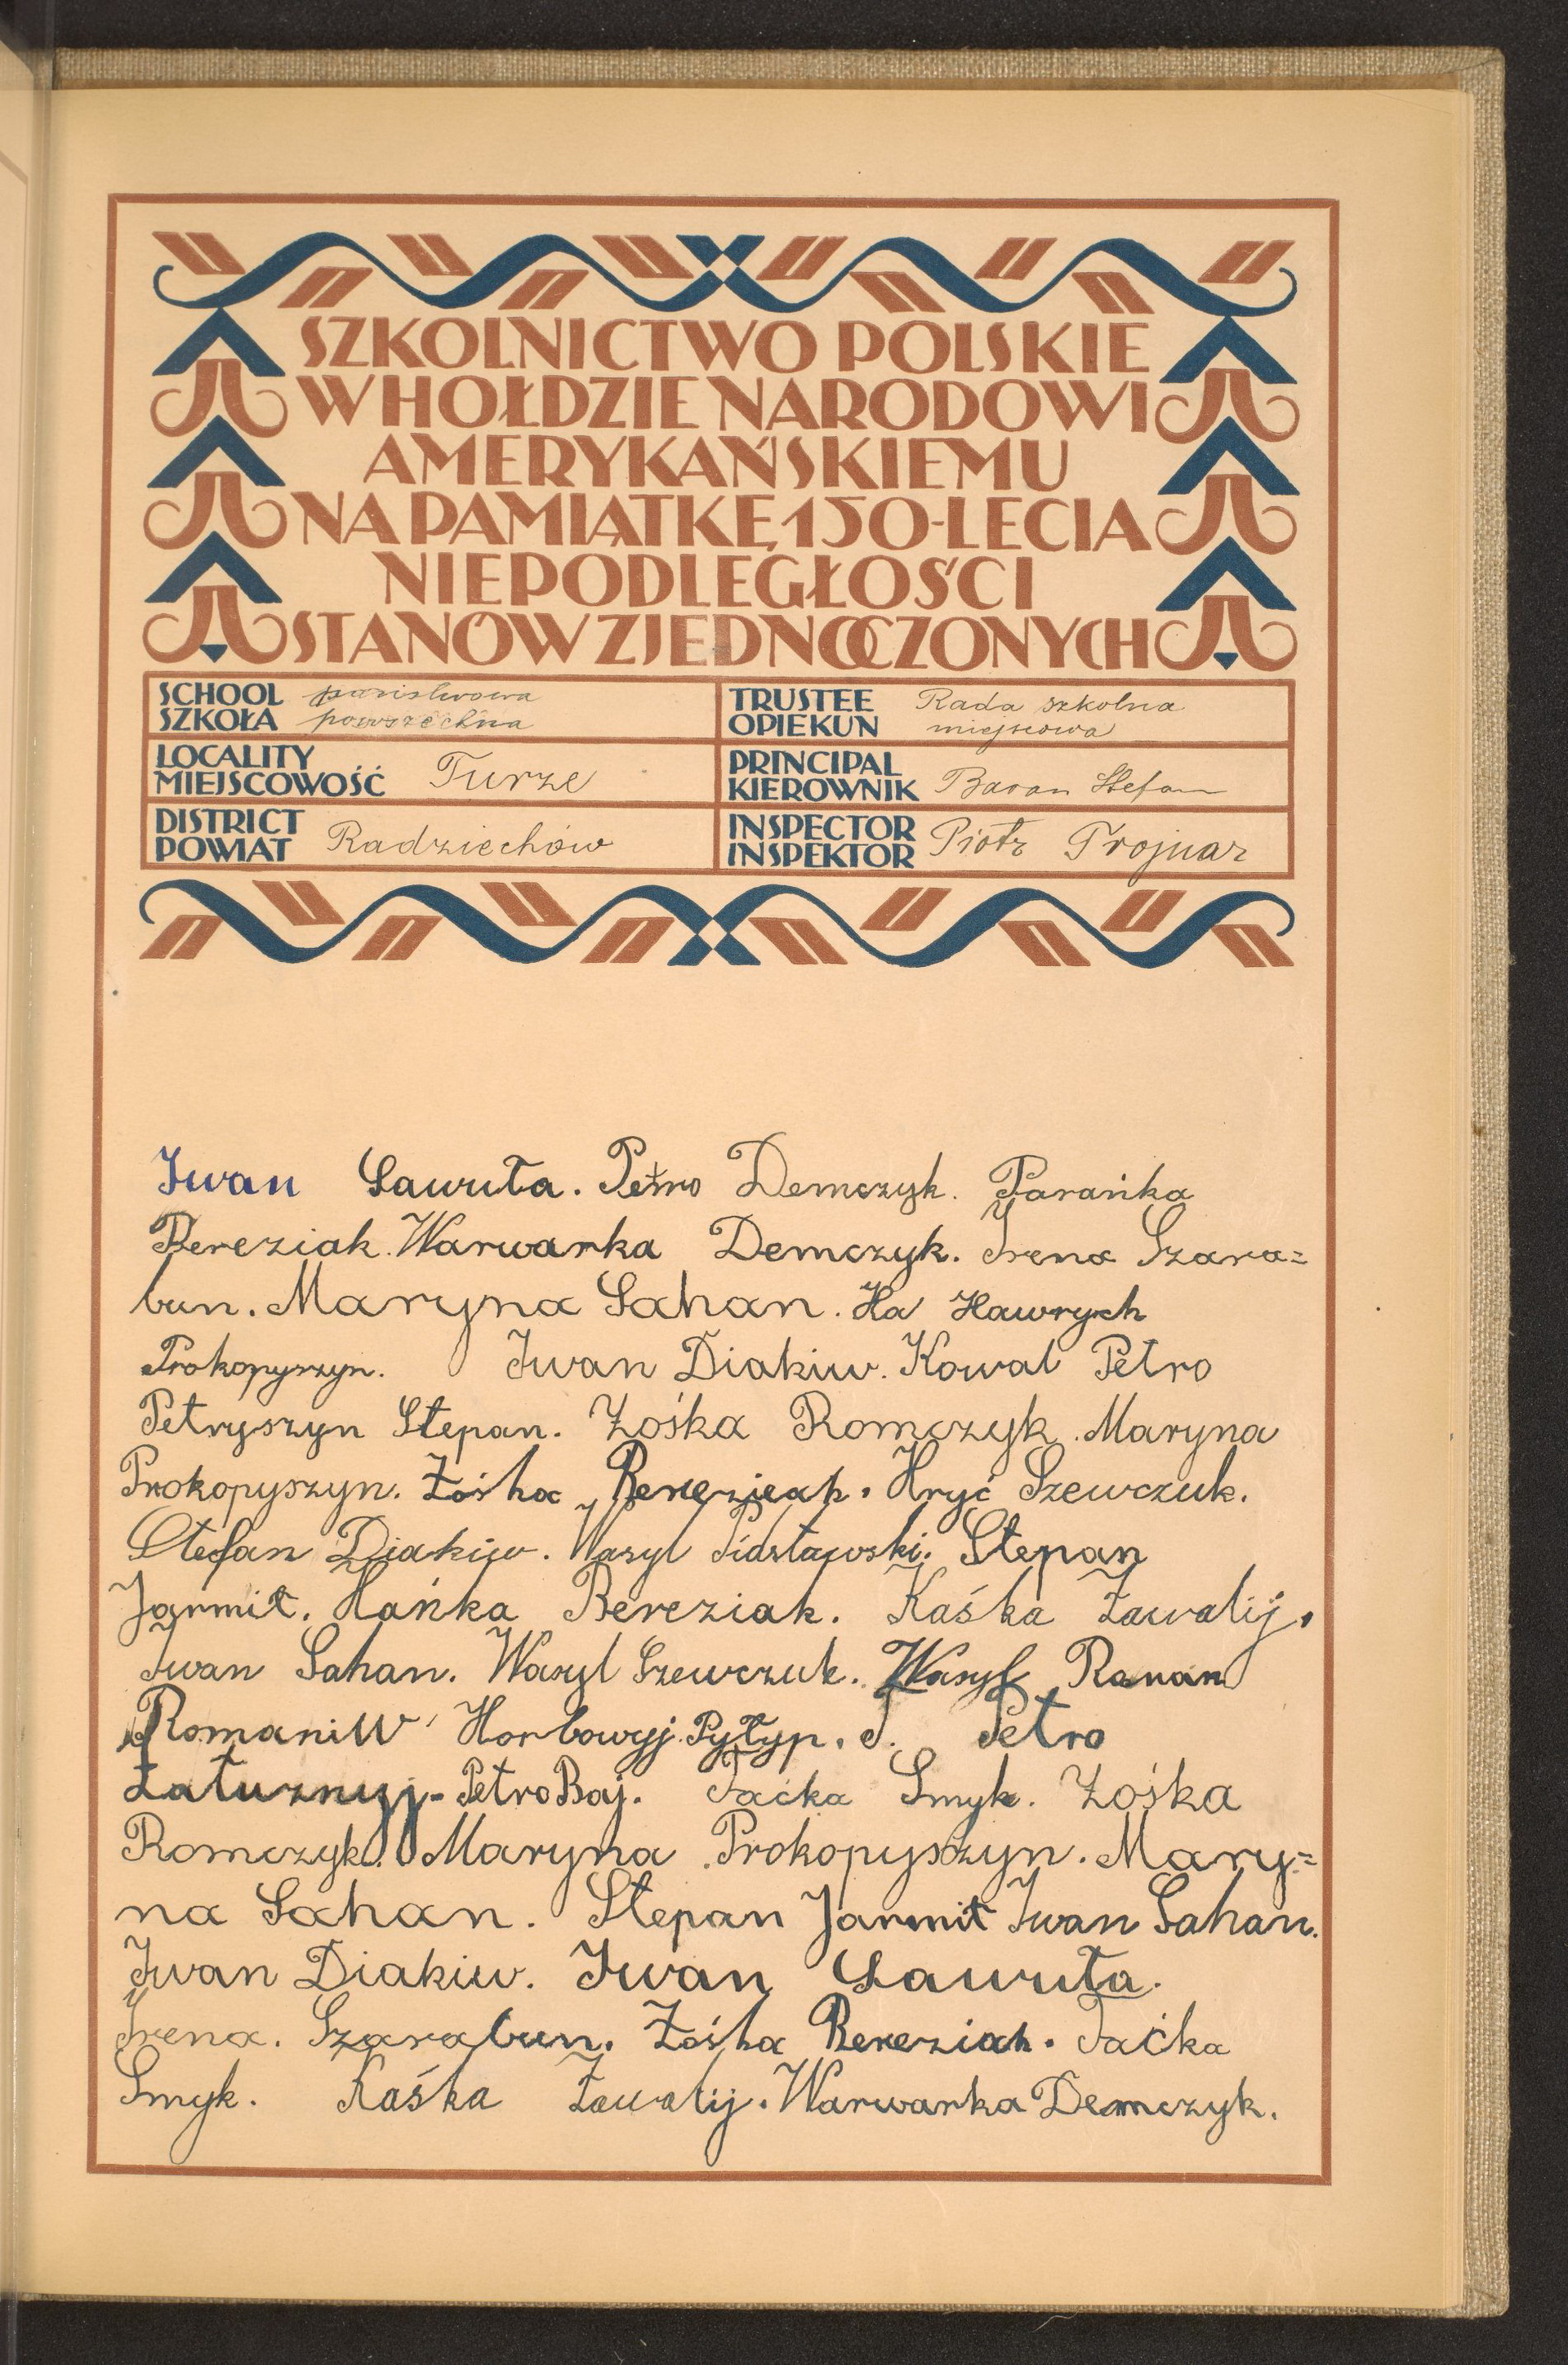 SZKOLNICTWO POLSKIE
W HOŁDZIE NARODOWI
AMERYKAŃSKIEMU
NA PAMIĄTKĘ 150-LECIA
NIEPODLEGŁOŚCI
STANÓW ZJEDNOCZONYCH
SCHOOL
SZKOŁA
państwowa
powszechna
TRUSTEE
OPIEKUN
Rada szkolna
miejscowa
LOCALITY
MIEJSCOWOŚĆ
Turze
PRINCIPAL
KIEROWNIK
Baran Stefan
DISTRICT
POWIAT
Radziechów
INSPECTOR
INSPEKTOR
Piotr Trojnar
Iwan Sawuła. Petro Demczyk. Parańka
Bereziak. Warwarka Demczyk. Irena Szara=
bun. Maryna Sahan. Ha Hawrych
Prokopyszyn. Iwan Diakiw. Kowal Petro
Petryszyn Stepan. Zośka Romczyk. Maryna
Prokopyszyn. Zośka Bereziak. Hryć Szewczuk.
Stefan Diakiw. Wasyl Pidstawski. Stepan
Jarmit. Hańka Bereziak. Kaśka Zawalij.
Iwan Sahan. Wasyl Szewczuk. Wasyl
RomaniW Horbowyj. Pyłyp. J. Petro
Zatuznyj. Petro Baj. Taćka Smyk. Zośka
Romczyk. Maryna Prokopyszyn. Mary=
na Sahan. Stepan Jarmit Iwan Sahan.
Iwan Diakiw. Iwan Sawuła.
Irena. Szarabun. Zośka Bereziak. Taćka
Smyk. Kaśka Zawalij. Warwarka Demczyk.